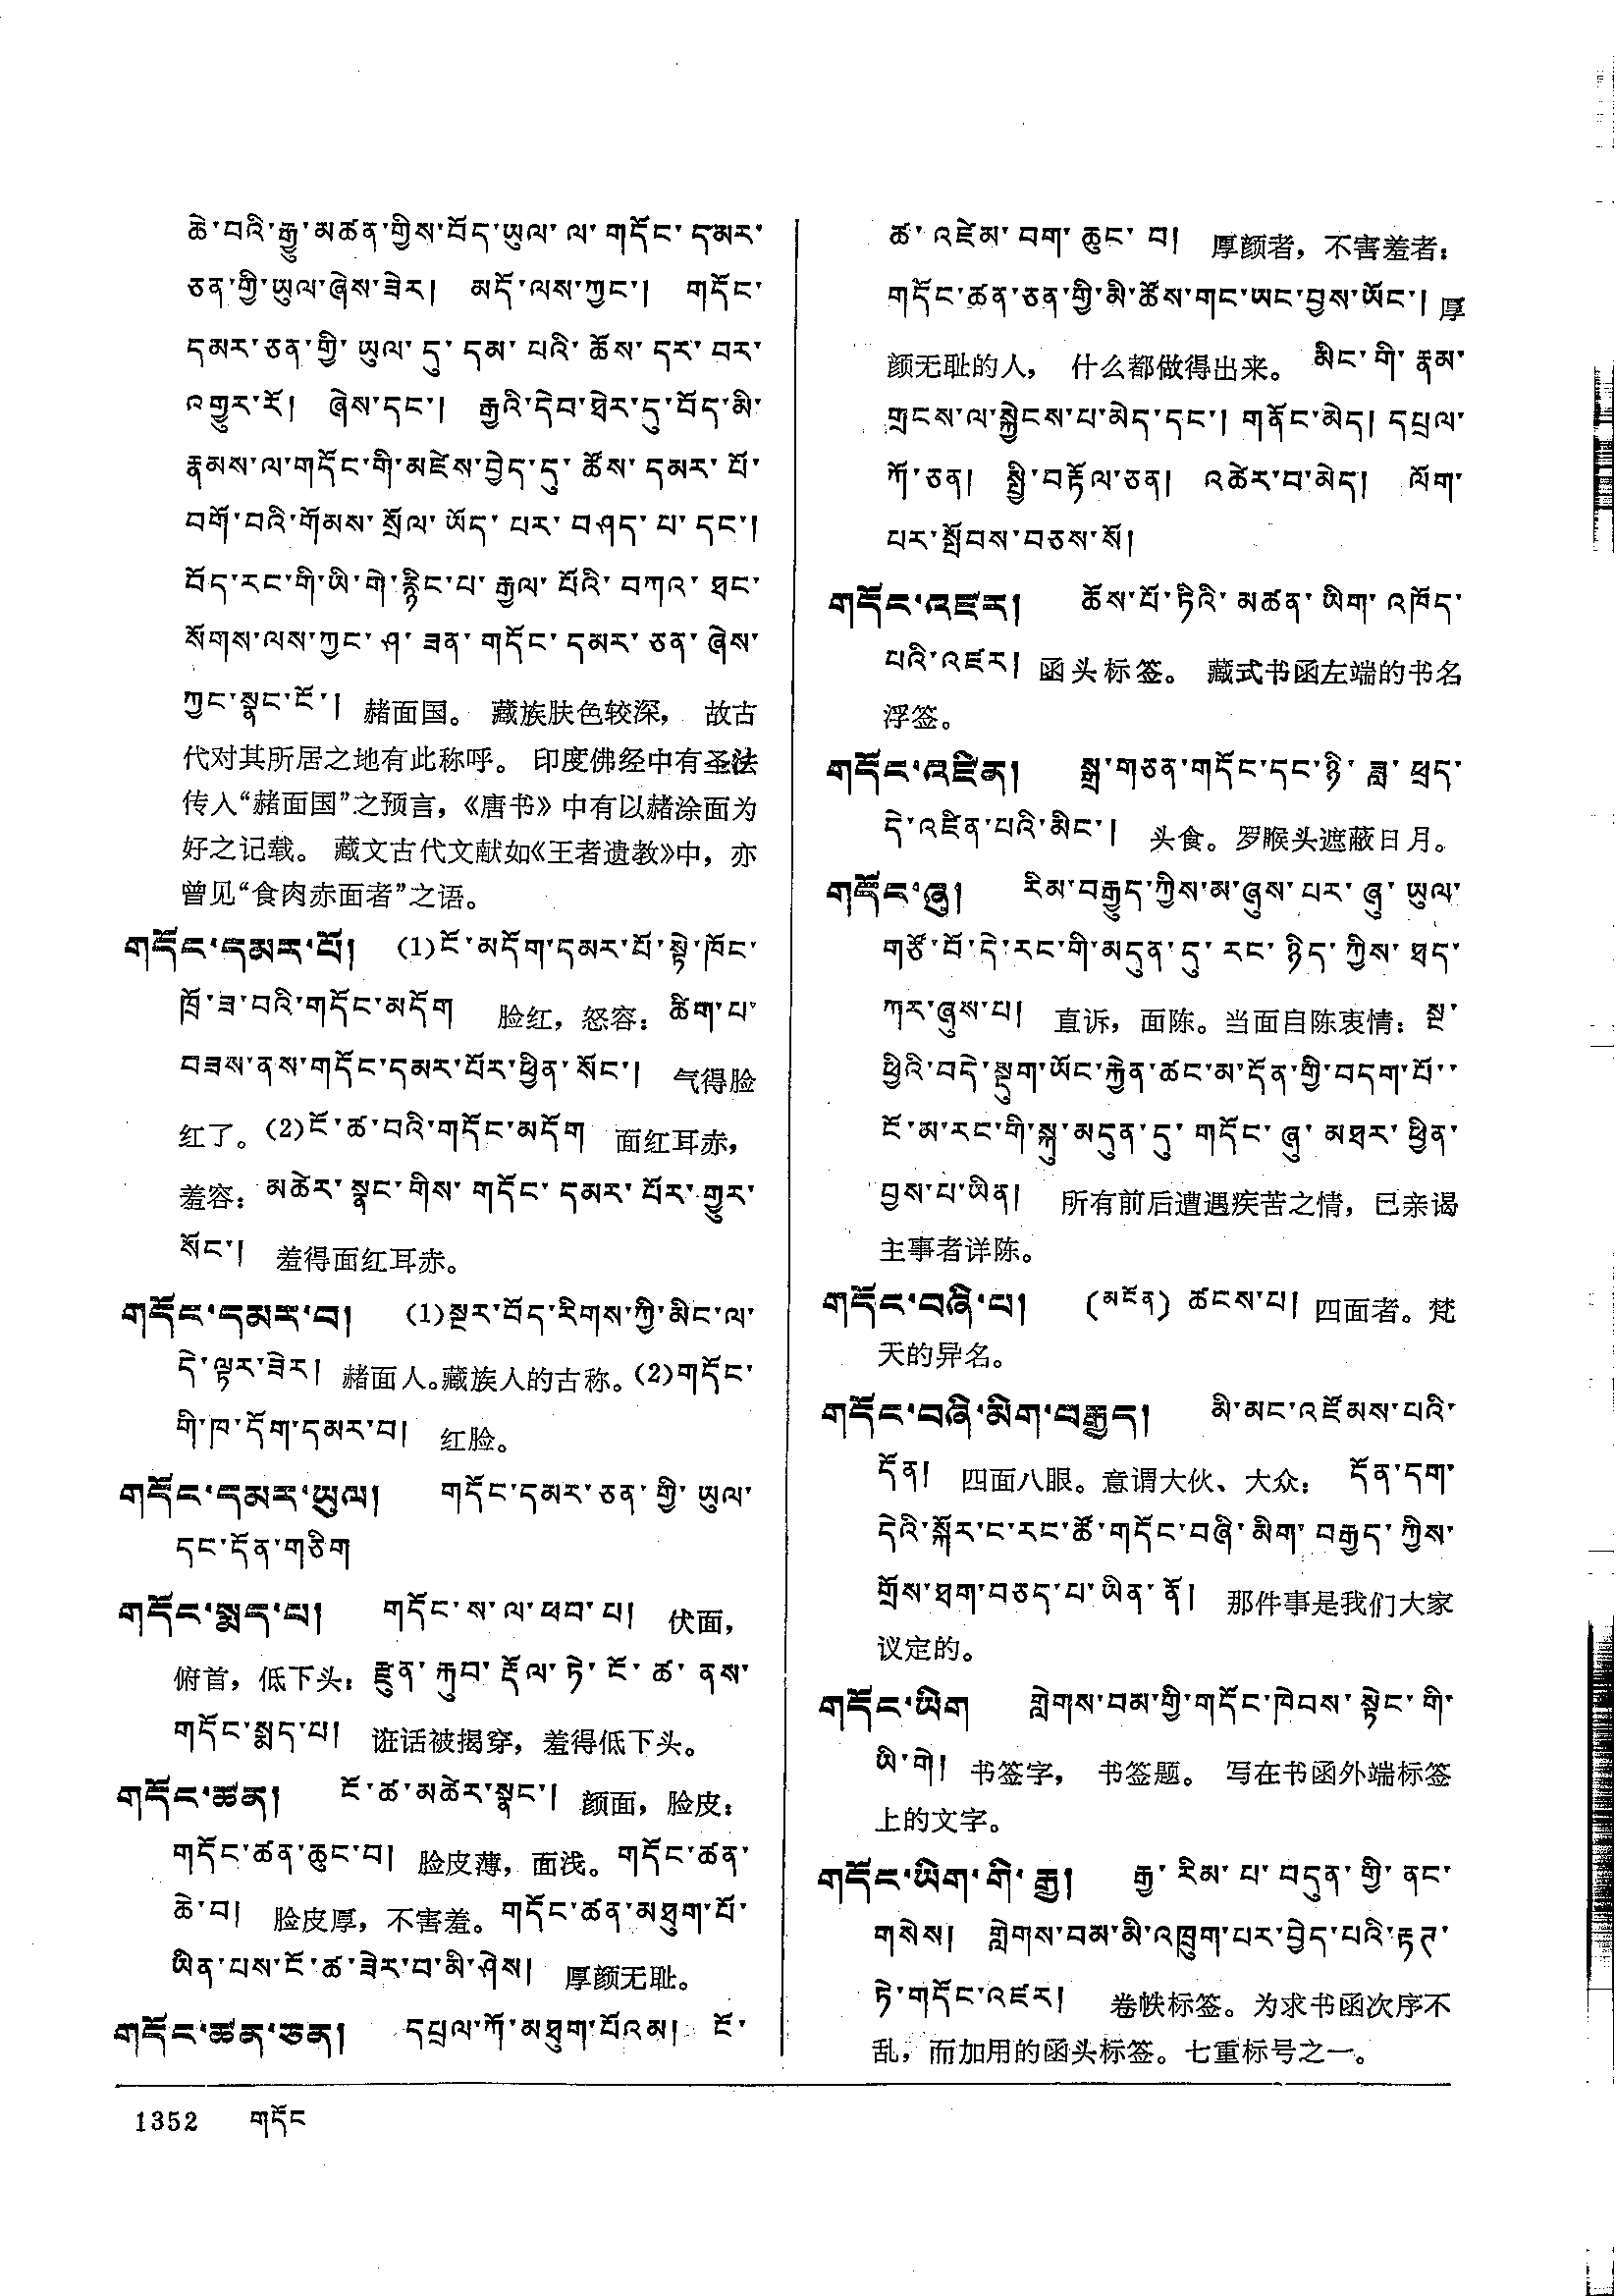 ཆེ་བའི་རྒྱུ་མཚན་གྱིས་བོད་ཡུལ་ལ་གདོང་དམར་
ཅན་གྱི་ཡུལ་ཞེས་ཟེར། མདོ་ལས་ཀྱང་། གདོང་
དམར་ཅན་གྱི་ཡུལ་དུ་དམ་པའི་ཆོས་དར་བར་
འགྱུར་རོ། ཞེས་དང་། རྒྱའི་དེབ་ཐེར་དུ་བོད་མི་
རྣམས་ལ་གདོང་གི་མཛེས་བྱེད་དུ་ཚོས་དམར་པོ་
བགོ་བའི་གོམས་སྲོལ་ཡོད་པར་བཤད་པ་དང་།
བོད་རང་གི་ཡི་གེ་རྙིང་པ་རྒྱལ་པོའི་བཀའ་ཐང་
སོགས་ལས་ཀྱང་ཤ་ཟན་གདོང་དམར་ཅན་ཞེས་
ཀྱང་སྣང་ངོ་། 赭面国。 藏族肤色较深， 故古
代对其所居之地有此称呼。 印度佛经中有圣法
传入“赭面国”之预言，《唐书》中有以赭涂面为
好之记载。 藏文古代文献如《王者遗教》中，亦
曾见“食肉赤面者”之语。
གདོང་དམར་པོ། (1)ངོ་མདོག་དམར་པོ་སྟེ་ཁོང་
ཁྲོ་ཟ་བའི་གདོང་མདོག 脸红，怒容：ཚིག་པ་
བཟས་ནས་གདོང་དམར་པོར་ཕྱིན་སོང་། 气得脸
红了。(2)ངོ་ཚ་བའི་གདོང་མདོག 面红耳赤，
羞容：མཚེར་སྣང་གིས་གདོང་དམར་པོར་གྱུར་
སོང་། 羞得面红耳赤。
གདོང་དམར་བ། (1)སྔར་བོད་རིགས་ཀྱི་མིང་ལ་
དེ་ལྟར་ཟེར། 赭面人。藏族人的古称。(2)གདོང་
གི་ཁ་དོག་དམར་བ། 红脸。
གདོང་དམར་ཡུལ། གདོང་དམར་ཅན་གྱི་ཡུལ་
དང་དོན་གཅིག
གདོང་སྨད་པ། གདོང་ས་ལ་ཕབ་པ། 伏面，
俯首，低下头：རྫུན་རྐུབ་རྡོལ་ཏེ་ངོ་ཚ་ནས་
གདོང་སྨད་པ། 诳话被揭穿，羞得低下头。
གདོང་ཚན། ངོ་ཚ་མཚེར་སྣང་། 颜面，脸皮：
གདོང་ཚན་ཆུང་བ། 脸皮薄，面浅。གདོང་ཚན་
ཆེ་བ། 脸皮厚，不害羞。གདོང་ཚན་མཐུག་པོ་
ཡིན་པས་ངོ་ཚ་ཟེར་བ་མི་ཤེས། 厚颜无耻。
གདོང་ཚན་ཅན། དཔྲལ་ཀོ་མཐུག་པོའམ། ངོ་
ཚ་འཛེམ་བག་ཆུང་བ། 厚颜者，不害羞者：
གདོང་ཚན་ཅན་གྱི་མི་ཚོས་གང་ཡང་བྱས་ཡོང་། 厚
颜无耻的人， 什么都做得出来。 མིང་གི་རྣམ་
གྲངས་ལ་སྐྱེངས་པ་མེད་དང་། གནོང་མེད། དཔྲལ་
ཀོ་ཅན། སྤྱི་བརྟོལ་ཅན། འཚེར་བ་མེད། ལོག་
པར་སྤོབས་བཅས་སོ།
གདོང་འཛར། ཆོས་པོ་ཏིའི་མཚན་ཡིག་འཁོད་
པའི་འཛར། 函头标签。 藏式书函左端的书名
浮签。
གདོང་འཛིན། སྒྲ་གཅན་གདོང་དང་ཉི་ཟླ་ཕྲད་
དེ་འཛིན་པའི་མིང་། 头食。罗睺头遮蔽日月。
གདོང་ཞུ། རིམ་བརྒྱུད་ཀྱིས་མ་ཞུས་པར་ཞུ་ཡུལ་
གཙོ་བོ་དེ་རང་གི་མདུན་དུ་རང་ཉིད་ཀྱིས་ཐད་
ཀར་ཞུས་པ། 直诉，面陈。当面自陈衷情：སྔ་
ཕྱིའི་བདེ་སྡུག་ཡོང་རྐྱེན་ཚང་མ་དོན་གྱི་བདག་པོ་
ངོ་མ་རང་གི་སྐུ་མདུན་དུ་གདོང་ཞུ་མཐར་ཕྱིན་
བྱས་པ་ཡིན། 所有前后遭遇疾苦之情，已亲谒
主事者详陈。
གདོང་བཞི་པ། (མངོན) ཚངས་པ། 四面者。梵
天的异名。
གདོང་བཞི་མིག་བརྒྱད། མི་མང་འཛོམས་པའི་
དོན། 四面八眼。意谓大伙、大众：དོན་དག་
དེའི་སྐོར་ང་རང་ཚོ་གདོང་བཞི་མིག་བརྒྱད་ཀྱིས་
གྲོས་ཐག་བཅད་པ་ཡིན་ནོ། 那件事是我们大家
议定的。
གདོང་ཡིག གླེགས་བམ་གྱི་གདོང་ཁེབས་སྟེང་གི་
ཡི་གེ། 书签字， 书签题。 写在书函外端标签
上的文字。
གདོང་ཡིག་གི་རྒྱ། རྒྱ་རིམ་པ་བདུན་གྱི་ནང་
གསེས། གླེགས་བམ་མི་འཁྲུག་པར་བྱེད་པའི་རྟགས་
ཏེ་གདོང་འཛར། 卷帙标签。为求书函次序不
乱，而加用的函头标签。七重标号之一。
1352 གདོང